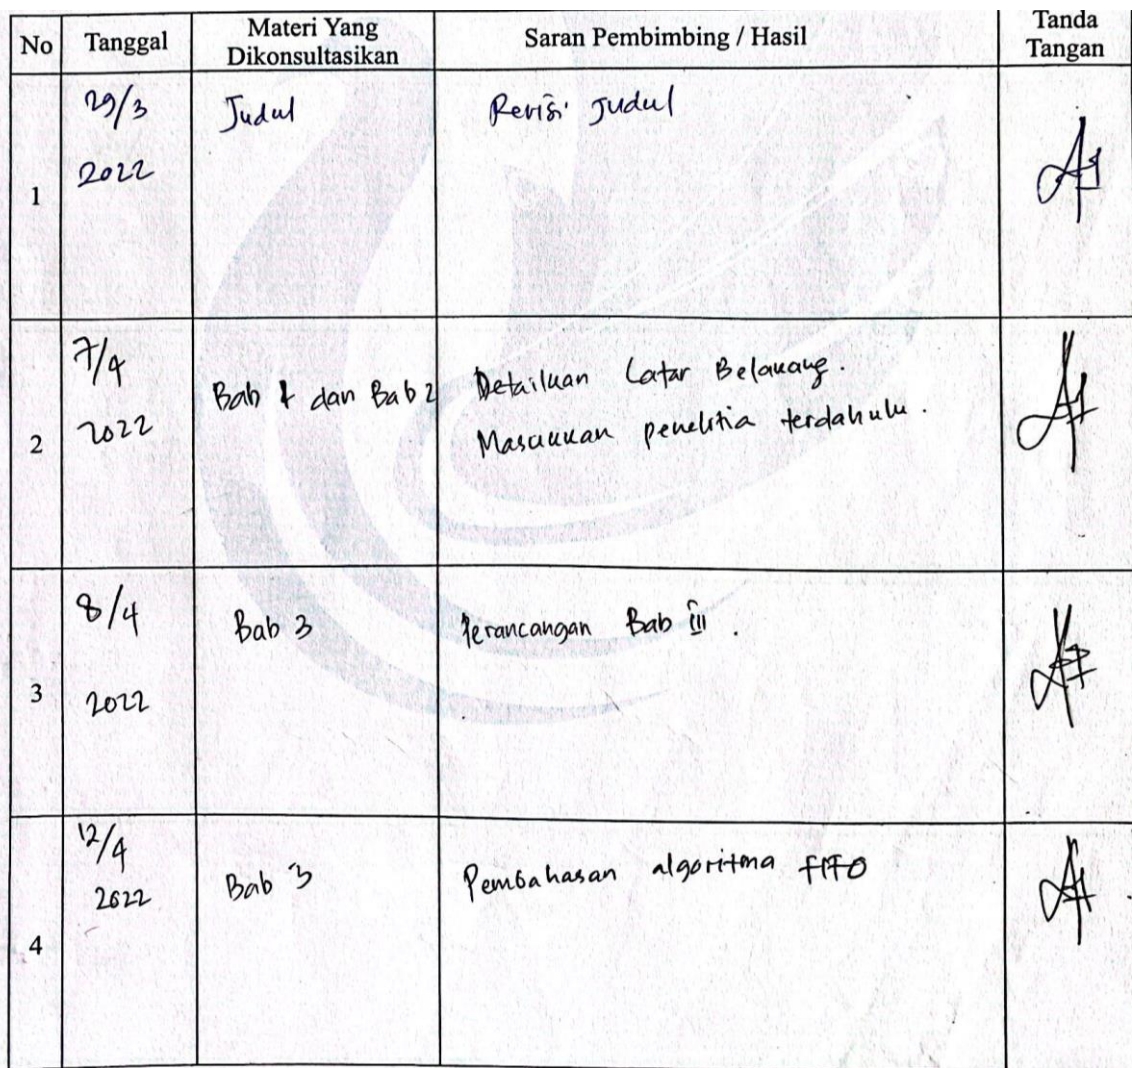 No Tanggal Materi Yang Dikonsultasikan Saran Pembimbing / Hasil Tanda Tangan
29/3 Judul Revisi Judul
2022
1
7/4
Bab 1 dan Bab 2 Detailkan Latar Belakang.
2022 Masukkan penelitia terdahulu.
2
8/4 Bab 3 Perancangan Bab III.
3 2022
12/4
2022 Bab 3 Pembahasan algoritma FIFO
4